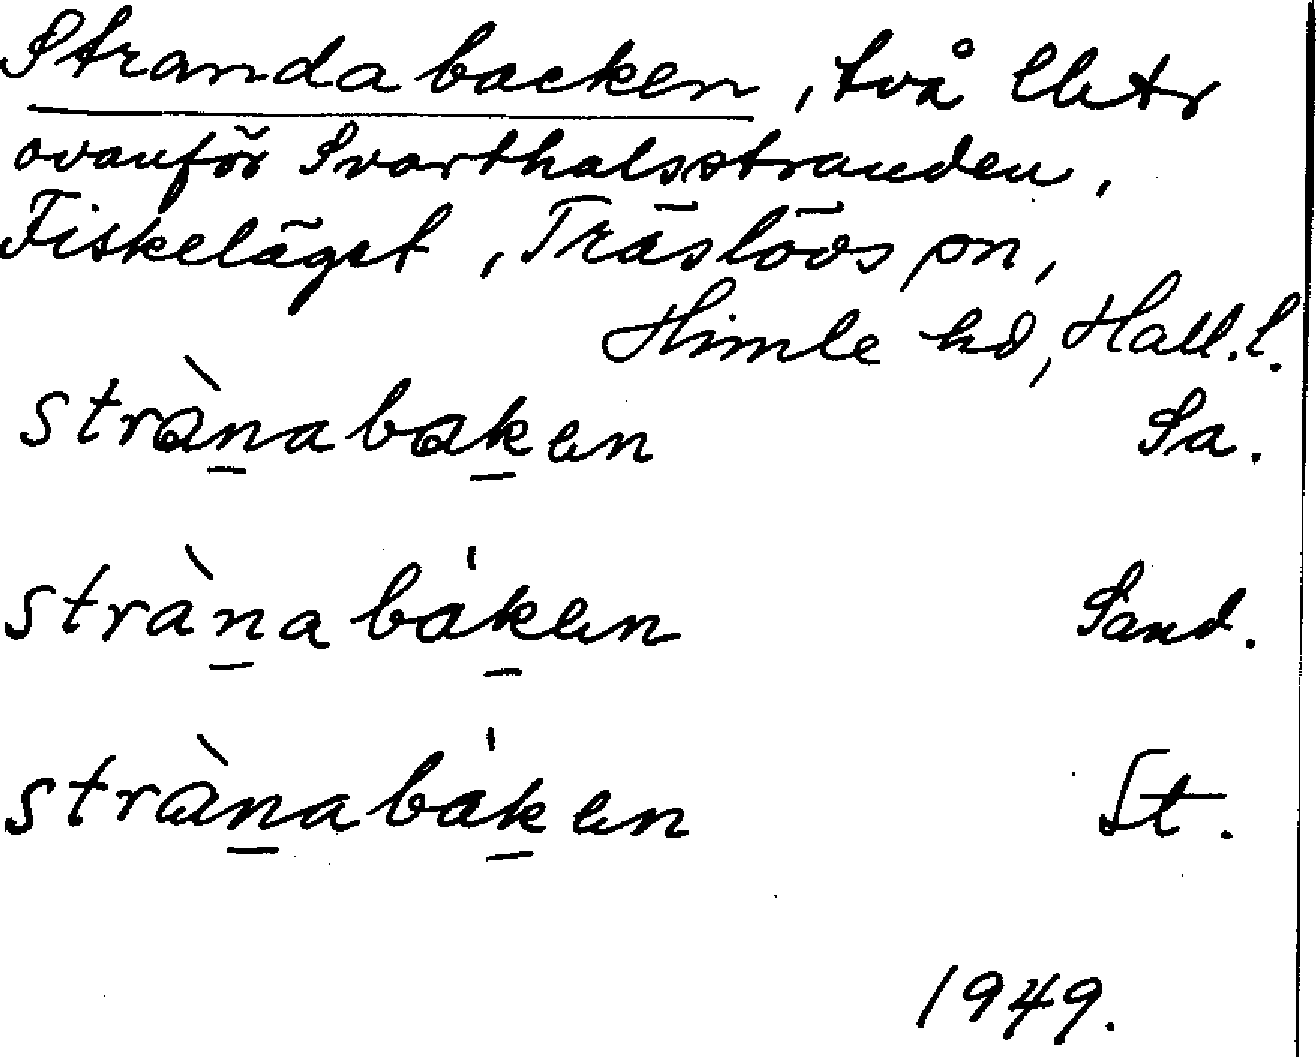 Strandabacken, två
ovanför Svarthalsstranden,
Fiskeläget, Träslövs sn,
Himle hd, Hall. l.
strànabaken Sa.
strànabáken Sand.
strànabáken St.
1949.